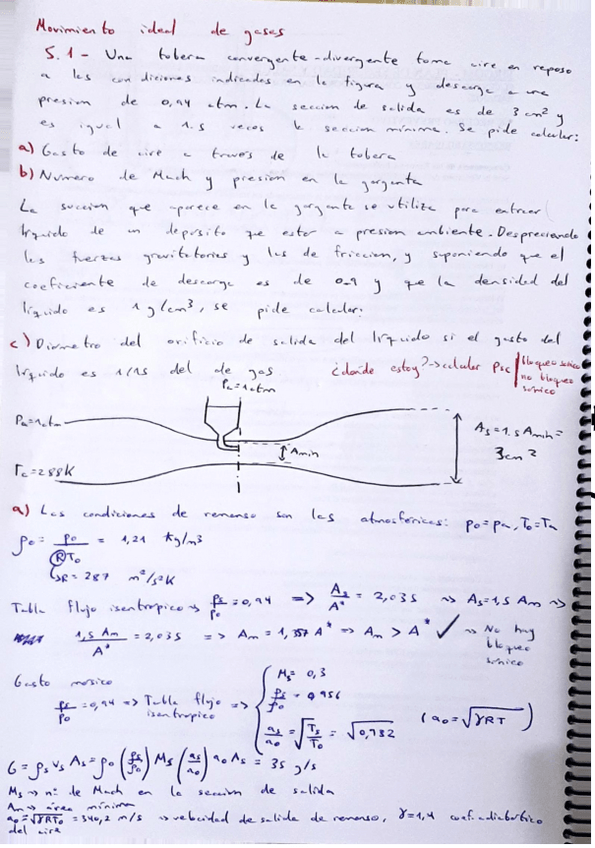 Movimiento ideal de gases
5.1- Una tobera convergente-divergente toma aire en reposo
a las condiciones indicadas en la figura y descarga a una
presion de 0,94 atm. La seccion de salida es de 3 cm² y
es igual a 1.5 veces la seccion minima. Se pide calcular:
a) Gasto de aire a traves de la tobera
b) Numero de Mach y presion en la garganta
La succion que aparece en la garganta se utiliza para extraer
líquido de un deposito que esta a presion ambiente. Despreciando
las fuerzas gravitatorias y las de friccion, y suponiendo que el
coeficiente de descarga es de 0.9 y que la densidad del
líquido es 1 g/cm³, se pide calcular:
c) Diametro del orificio de salida del líquido si el gasto del
líquido es 1/15 del de gas
¿donde estoy? → calcular Psc | bloqueo sonico
no bloqueo sonico
Pa=1atm
Pa=1atm
Amin
As=1,5 Amin=
3cm²
Ta=288K
a) Las condiciones de remanso son las atmosféricas: po=pa, To=Ta
ρo = po/RTo = 1,21 kg/m³
R= 287 m²/s²K
Tabla flujo isentropico → ps/po = 0,94 => As/A* = 2,035 → As=1,5 Am →
1,5 Am/A* = 2,035 => Am = 1,357 A* => Am > A* ✓ → No hay
bloqueo
sonico
Gasto masico
ps/po = 0,94 => Tabla flujo isentropico =>
Ms = 0,3
ρs/ρo = 0,956
as/ao = √(Ts/To) = √0,982
(ao = √γRT)
G = ρs vs As = ρo (ρs/ρo) Ms (as/ao) ao As = 35 g/s
Ms → nº de Mach en la seccion de salida
Am → área mínima
ao = √γRTo = 340,2 m/s → velocidad de salida de remanso, γ=1,4 coef. adiabatico
del aire